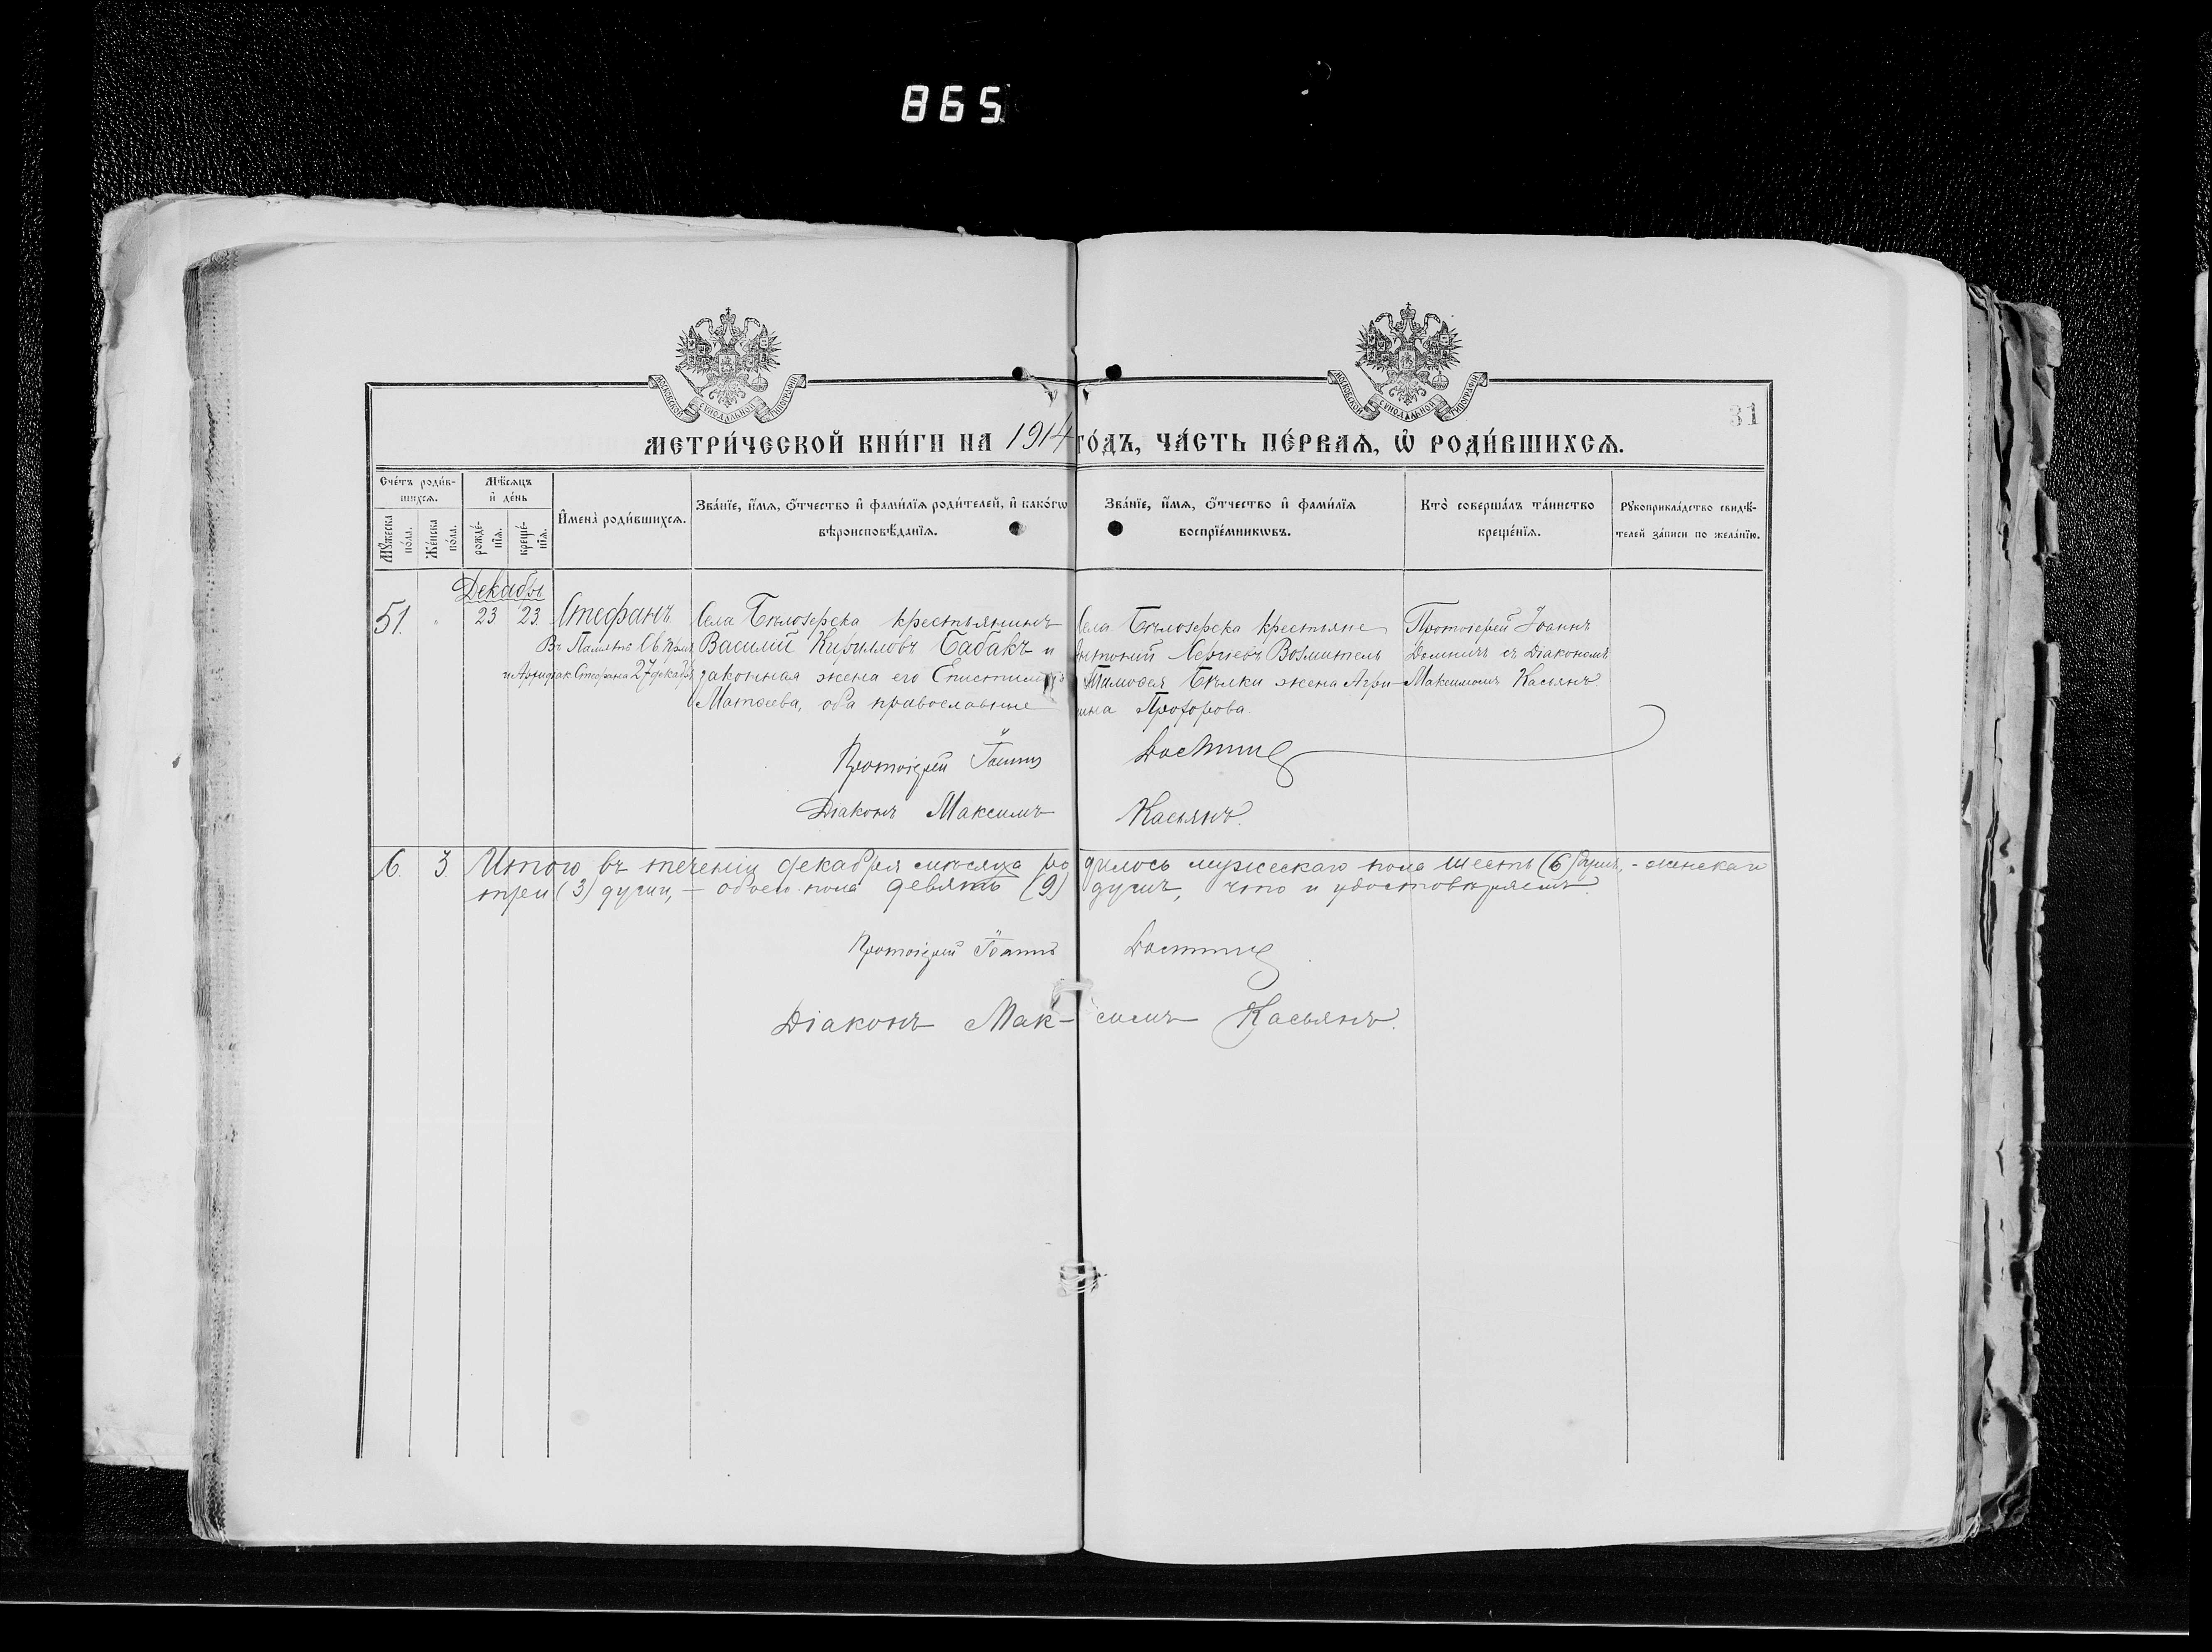 865
МОСКОВСКОЙ СѴНОДАЛЬНОЙ ТИПОГРАФІИ
МОСКОВСКОЙ СѴНОДАЛЬНОЙ ТИПОГРАФІИ
31
МЕТРИ́ЧЕСКОЙ КНИ́ГИ НА 1914 ГО́ДЪ, ЧА́СТЬ ПЕ́РВАѦ, Ѽ РОДИ́ВШИХСѦ.
Сче́тъ роди́в-
шихсѧ.
Мꙋ́жеска
по́ла.
Же́нска
по́ла.
Мѣ́сѧцъ
и҆ де́нь
рожде́-
нїѧ.
креще́-
нїѧ.
И҆мена̀ роди́вшихсѧ.
Зва́нїе, и҆́мѧ, ѻ҆́тчество и҆ фами́лїѧ роди́телей, и҆ како́гѡ
вѣроисповѣ́данїѧ.
Зва́нїе, и҆́мѧ, ѻ҆́тчество и҆ фами́лїѧ
воспрїе́мникѡвъ.
Кто̀ соверша́лъ та́инство
креще́нїѧ.
Рꙋкоприкла́дство свидѣ́-
телей за́писи по жела́нїю.
Декабрь
51. " 23 23 Стефанъ
Въ Память Св. Перв.
и Архидіак. Стефана 27 декабря
Села Бѣлозерска крестьянинъ
Василій Кирилловъ Бабакъ и
законная жена его
Матѳеева, оба православные
Села Бѣлозерска крестьяне
Антоній Сергіевъ Возмитель
Тимоѳея Бѣлки жена Агри-
пина Прохорова.
Протоіерей Іоаннъ
съ Діакономъ
Максимомъ Касьянъ
Протоіерей Іоаннъ
Діаконъ Максимъ Касьянъ.
6. 3. Итого въ теченіи декабря мѣсяца родилось мужескаго пола шесть (6) душъ, - женскаго
три (3) души, - обоего пола девять (9) душъ, что и удостовѣряемъ.
Протоіерей Іоаннъ
Діаконъ Мак-симъ Касьянъ.